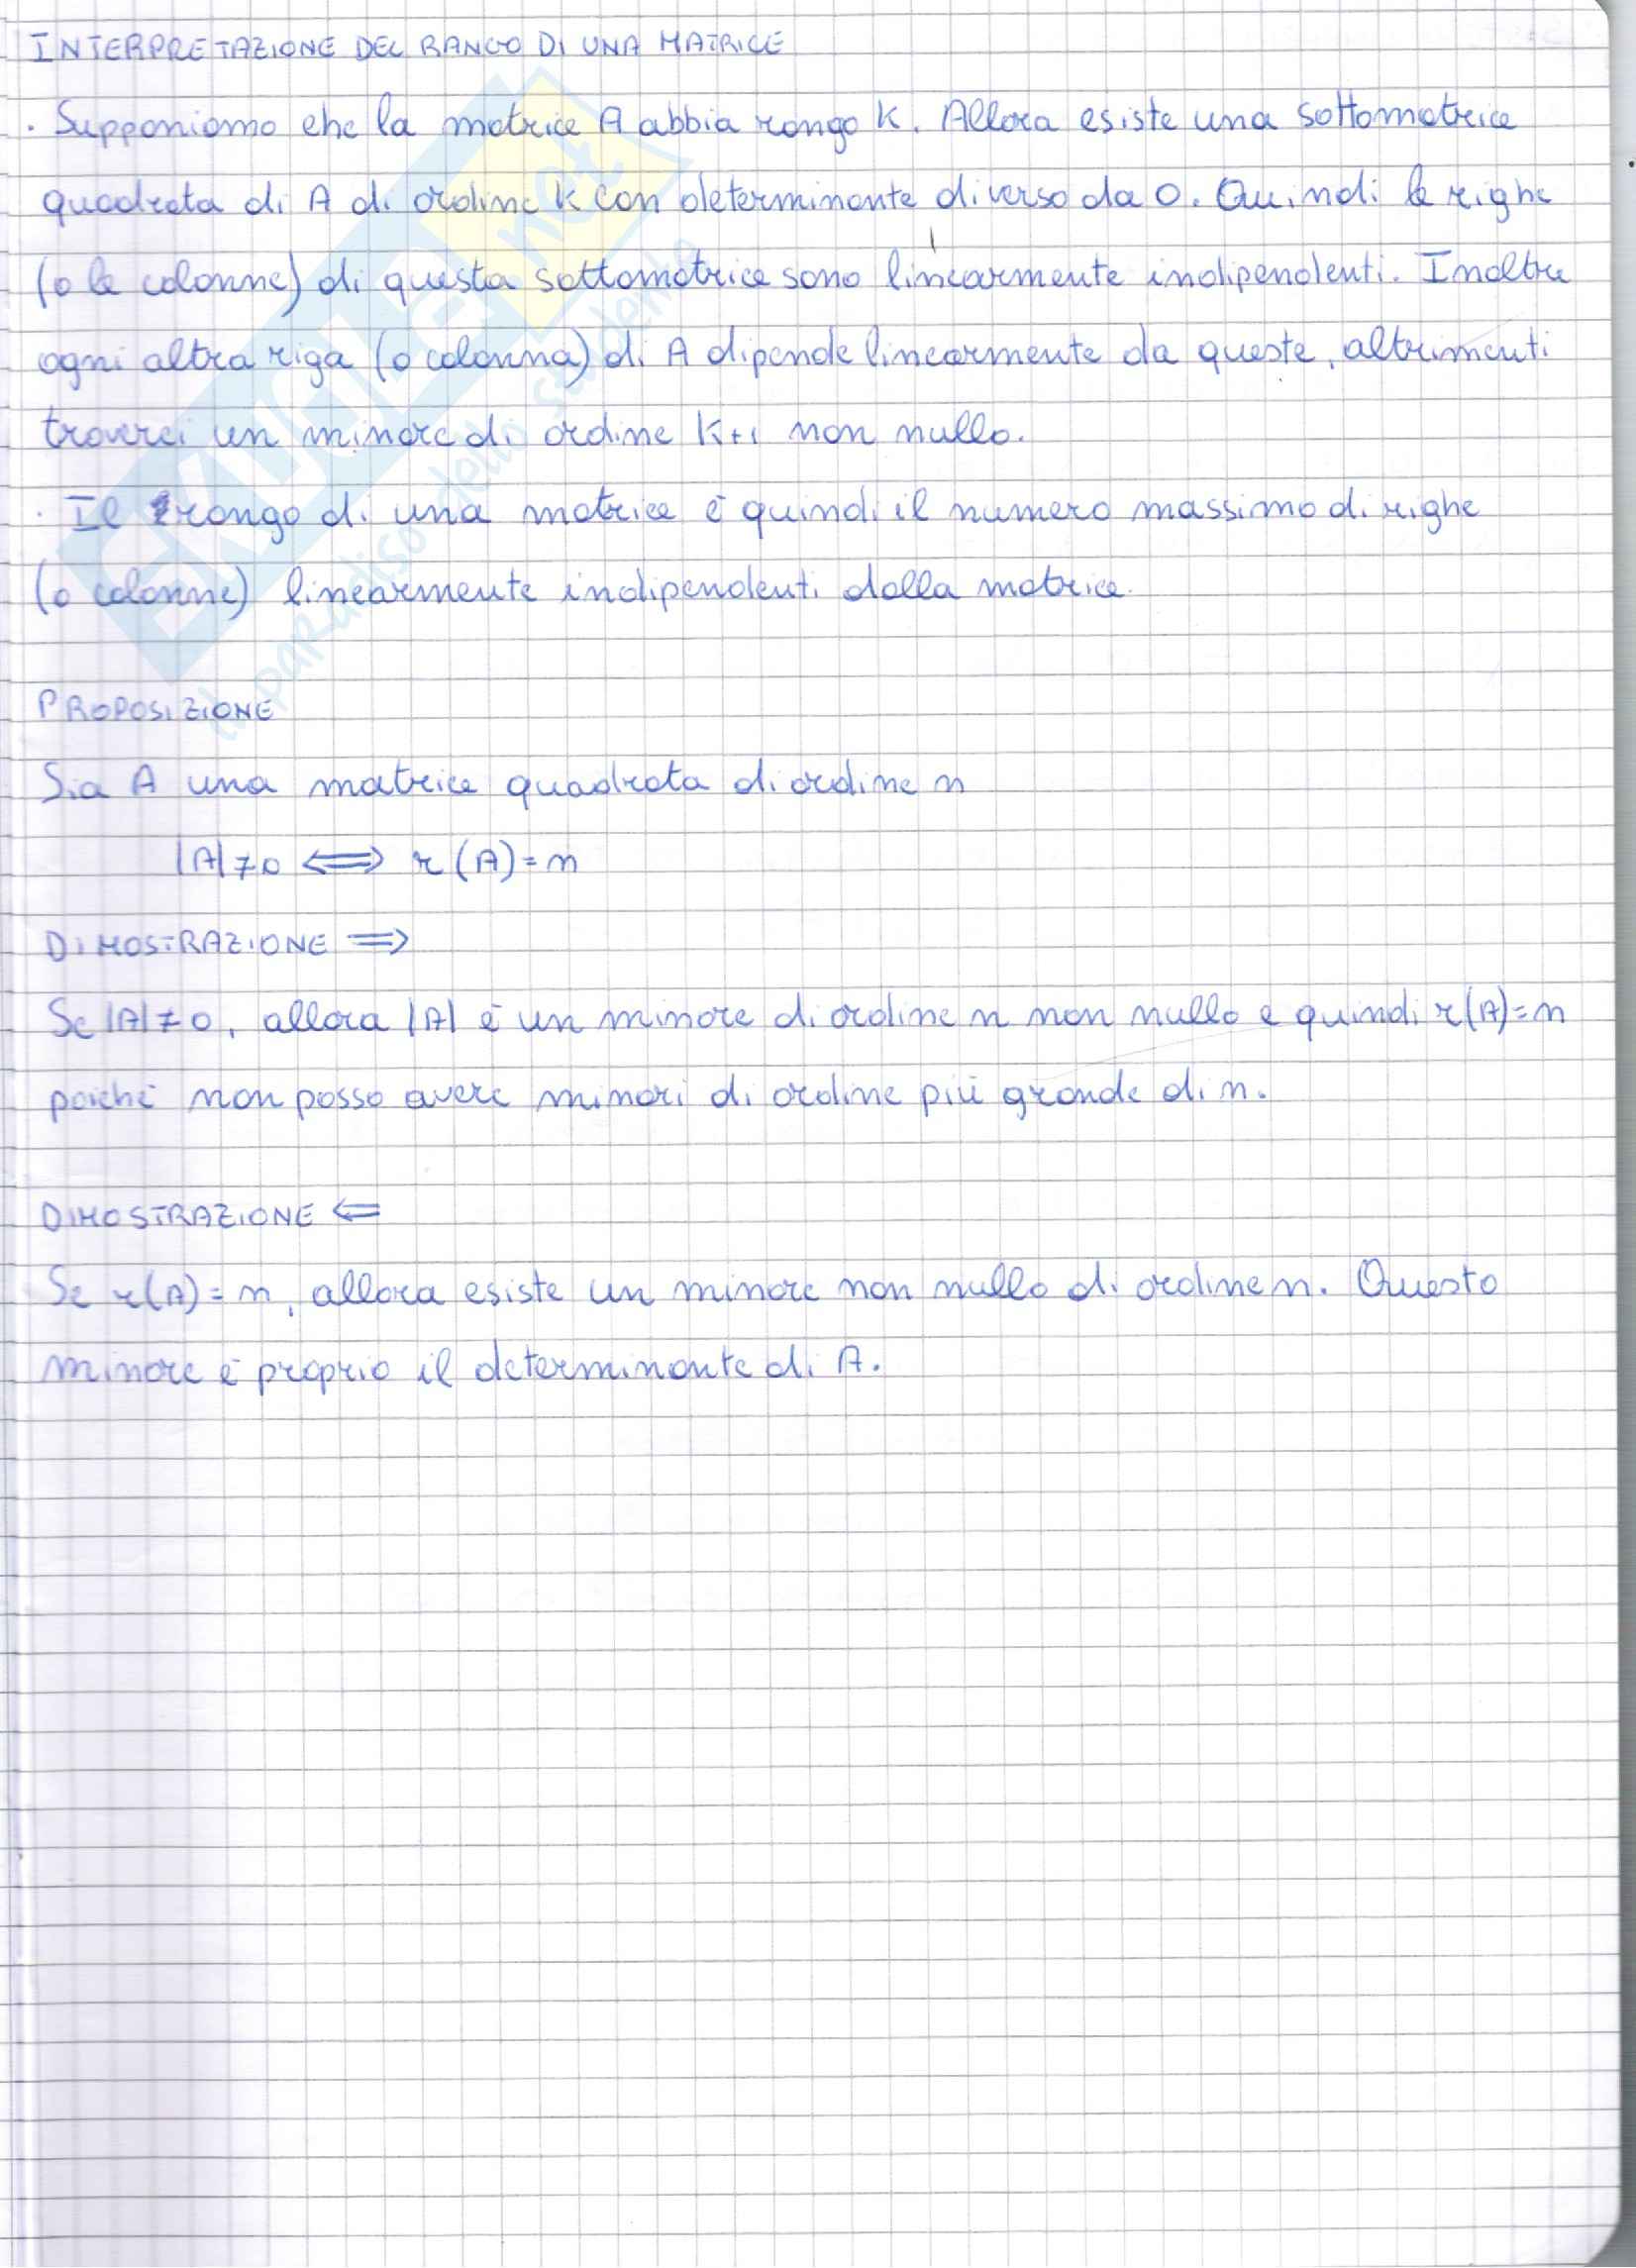 INTERPRETAZIONE DEL RANGO DI UNA MATRICE
· Supponiamo che la matrice A abbia rango K. Allora esiste una sottomatrice
quadrata di A di ordine K con determinante diverso da 0. Quindi le righe
(o le colonne) di questa sottomatrice sono linearmente indipendenti. Inoltre
ogni altra riga (o colonna) di A dipende linearmente da queste, altrimenti
troverei un minore di ordine K+1 non nullo.
· Il rango di una matrice è quindi il numero massimo di righe
(o colonne) linearmente indipendenti dalla matrice.
PROPOSIZIONE
Sia A una matrice quadrata di ordine n
|A|≠0 ⟺ r(A)=n
DIMOSTRAZIONE ⟹
Se |A|≠0, allora |A| è un minore di ordine n non nullo e quindi r(A)=n
poiché non posso avere minori di ordine più grande di n.
DIMOSTRAZIONE ⟸
Se r(A)=n, allora esiste un minore non nullo di ordine n. Questo
minore è proprio il determinante di A.
SKUOLA.net
il paradiso dello studente